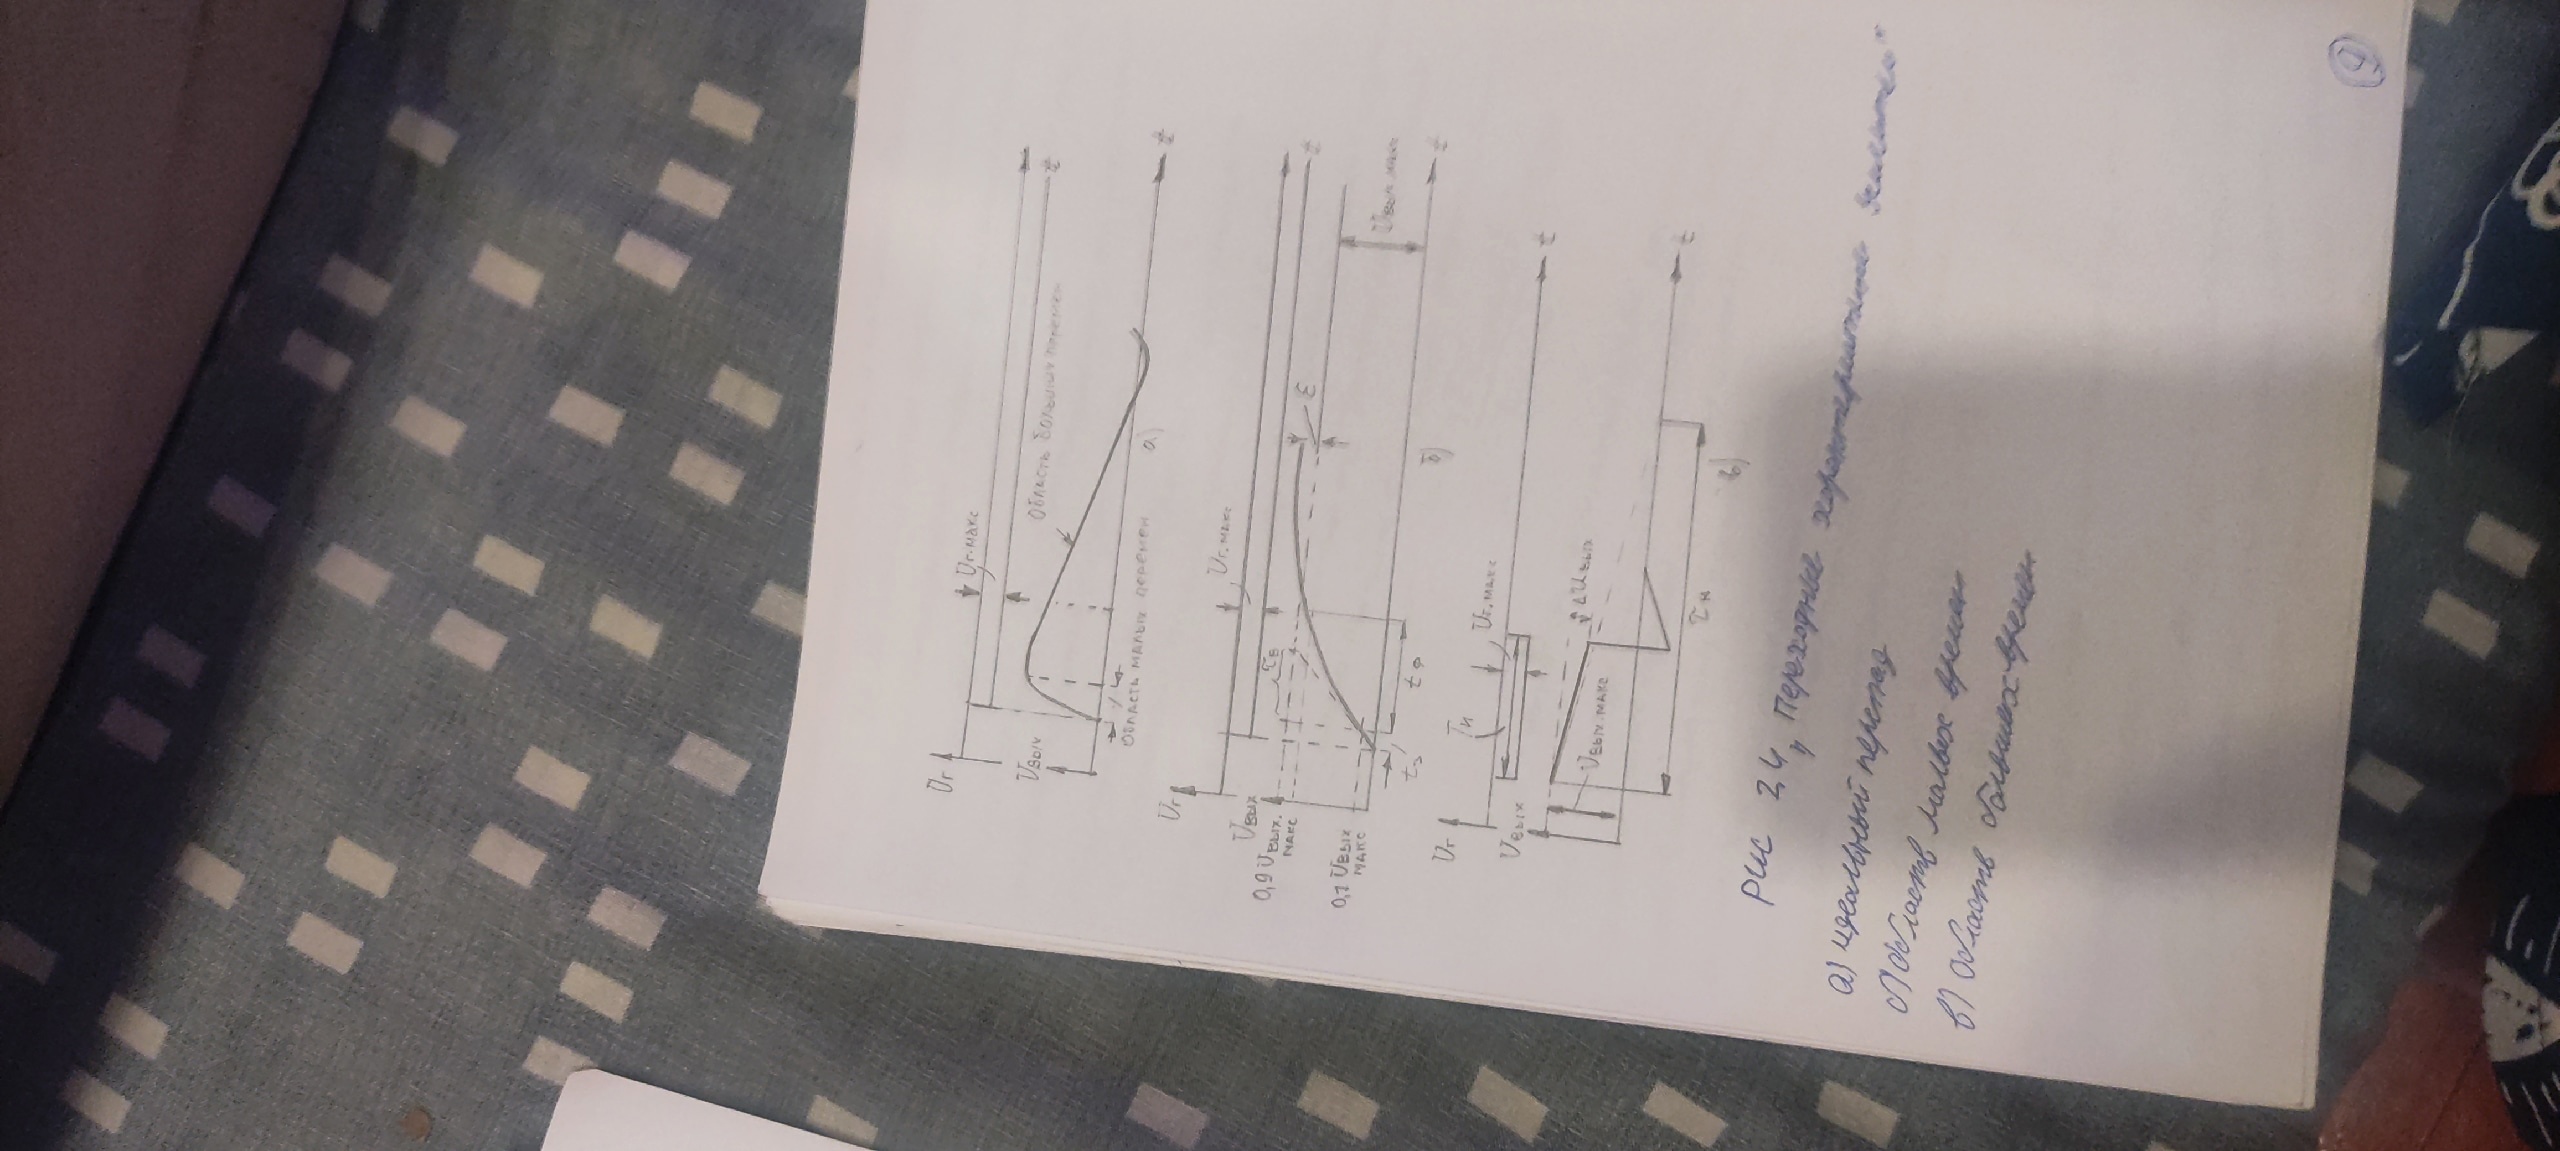 Uг
Uг.макс
t
Uвых
область больших перемен
t
область малых перемен
а)
Uг
Uг.макс
t
Uвых
0,9 Uвых.макс
τв
ε
t
0,1 Uвых макс
Uвых.макс
tз
tф
t
б)
Uг
Tи
Uг.макс
t
Uвых
Uвых.макс
ΔUвых
t
τн
в)
Рис 2,4 „Переходные характеристики усилителя"
а) идеальный перепад
б) область малых времен
в) область больших времен
9